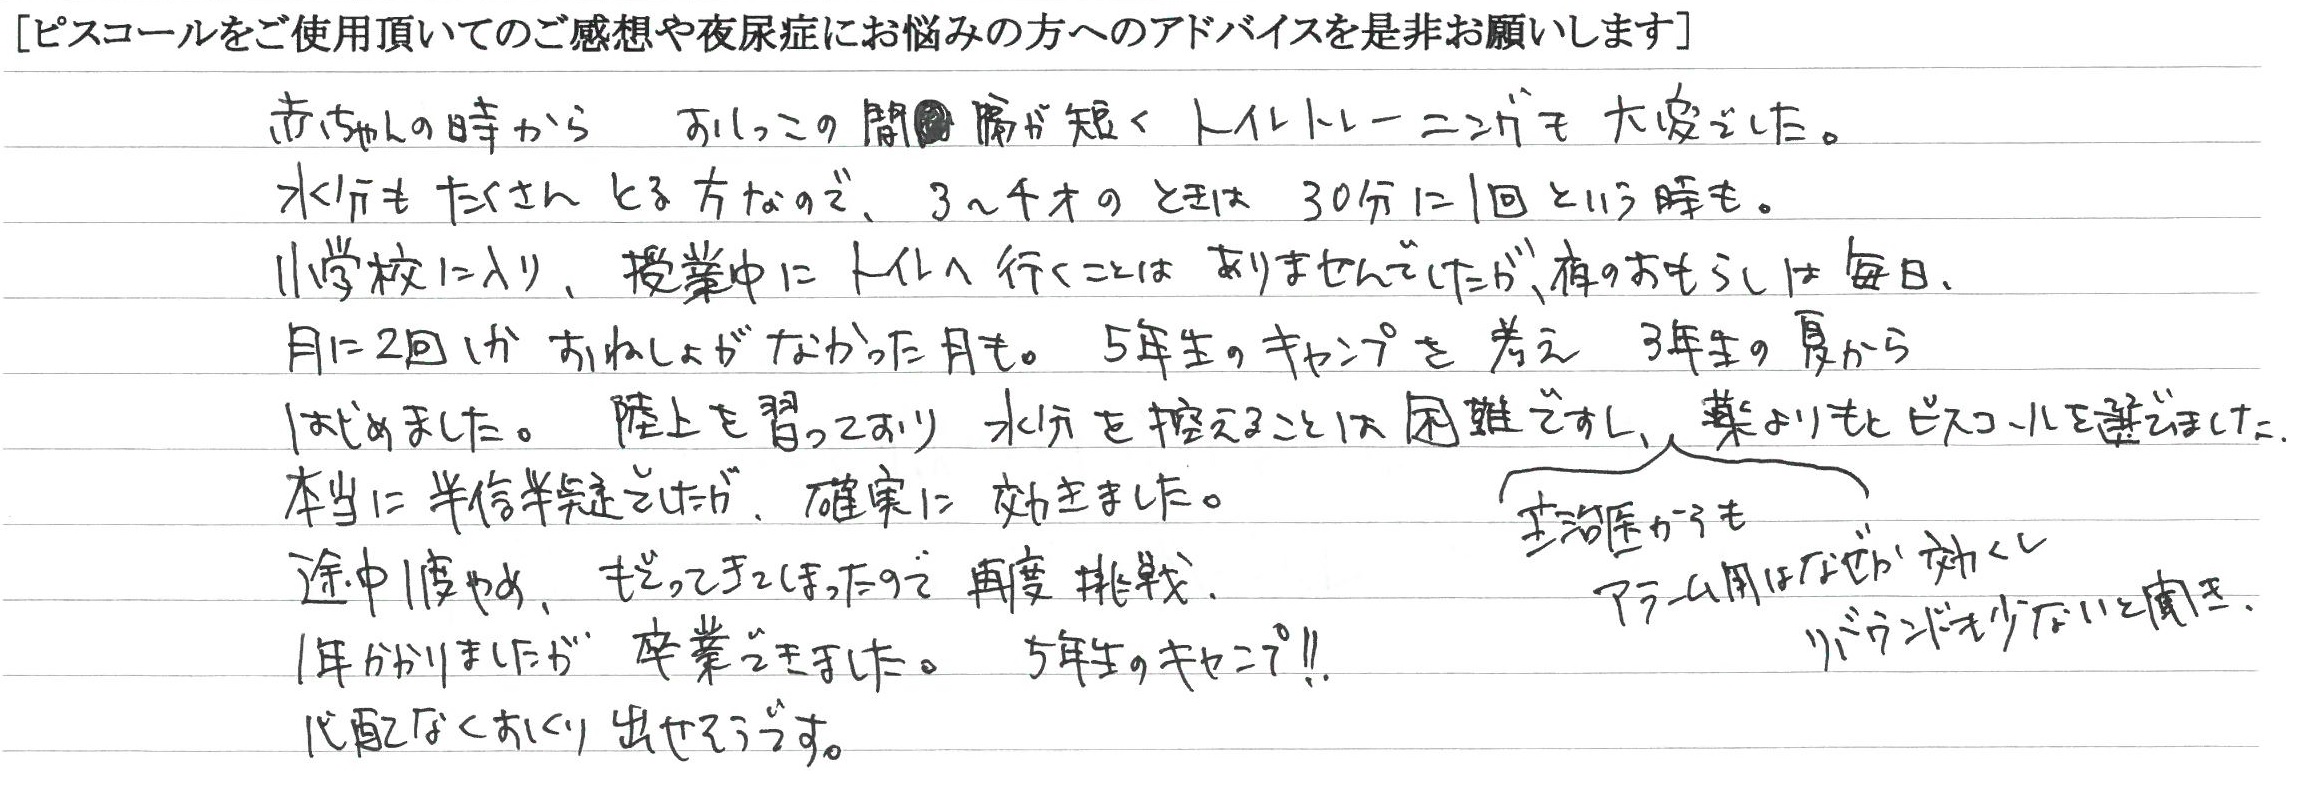 [ピスコールをご使用頂いてのご感想や夜尿症にお悩みの方へのアドバイスを是非お願いします]
赤ちゃんの時から おしっこの間隔が短く トイレトレーニングも 大変でした。
水分も たくさん とる方なので、3～4才の ときは 30分に1回という時も。
小学校に入り、授業中に トイレへ 行くことは ありませんでしたが、夜のおもらしは 毎日、
月に2回しか おねしょが なかった月も。 5年生のキャンプを 考え 3年生の夏から
はじめました。 陸上を習っており 水分を控えることは 困難ですし、薬よりもと ピスコールを選びました。
本当に 半信半疑でしたが、確実に 効きました。
主治医からも
アラーム用はなぜか効くし
リバウンドも少ないと聞き、
途中1度やめ、もどってきてしまったので 再度挑戦、
1年かかりましたが 卒業できました。 5年生のキャンプ!!
心配なくおくり出せそうです。